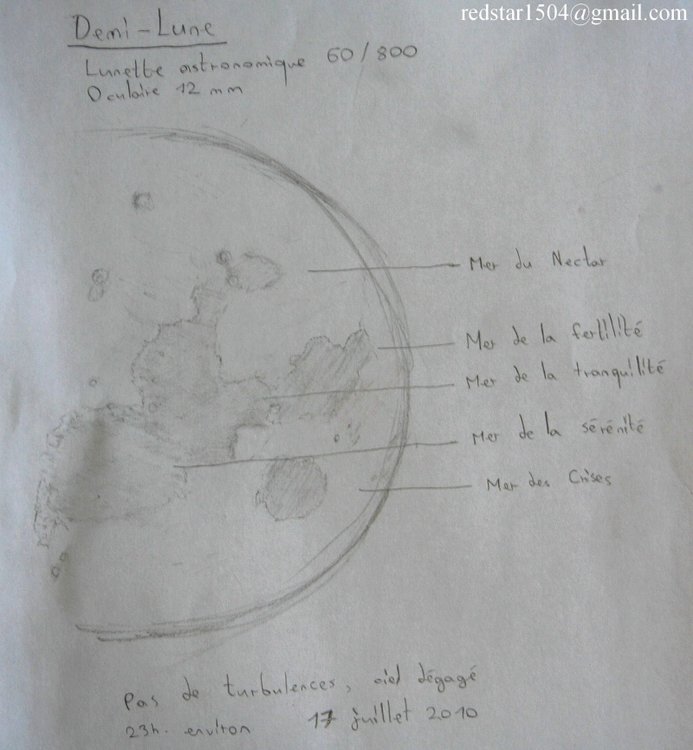 redstar1504@gmail.com
Demi-Lune
Lunette astronomique 60/800
Oculaire 12 mm
Mer du Nectar
Mer de la fertilité
Mer de la tranquilité
Mer de la sérénité
Mer des Crises
Pas de turbulences, ciel dégagé
23h. environ 17 juillet 2010